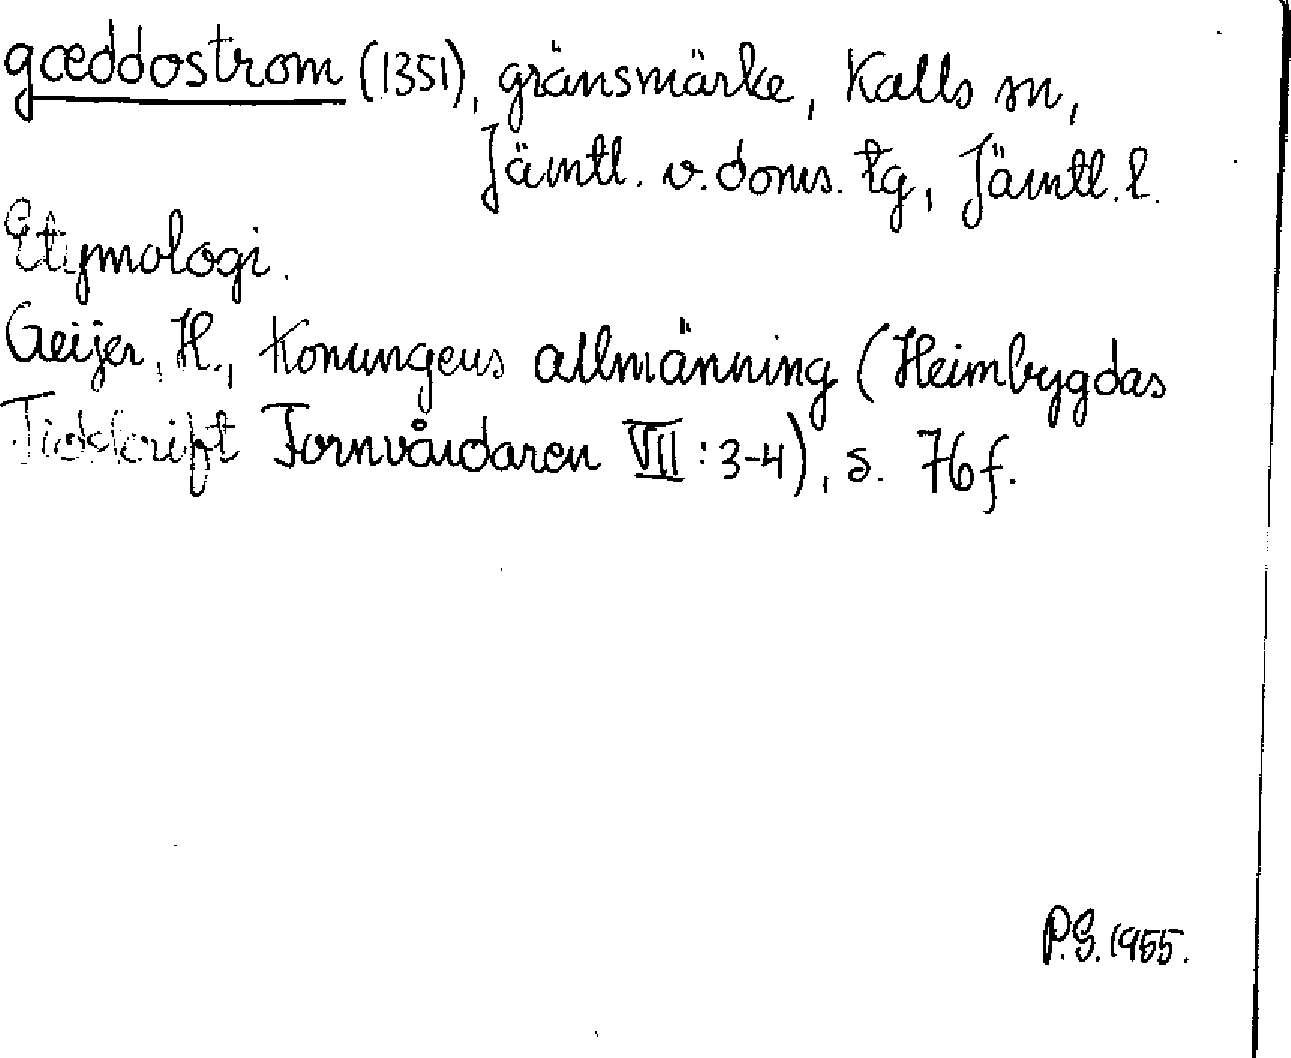 gœddostrom (1351), gränsmärke, Kalls sn,
Jämtl. v. doms. tg, Jämtl. l.
Etymologi.
Geijer, H., Konungens allmänning (Heimbygdas
Tidskrift Fornvårdaren VII:3-4), s. 76 f.
P.G. 1955.